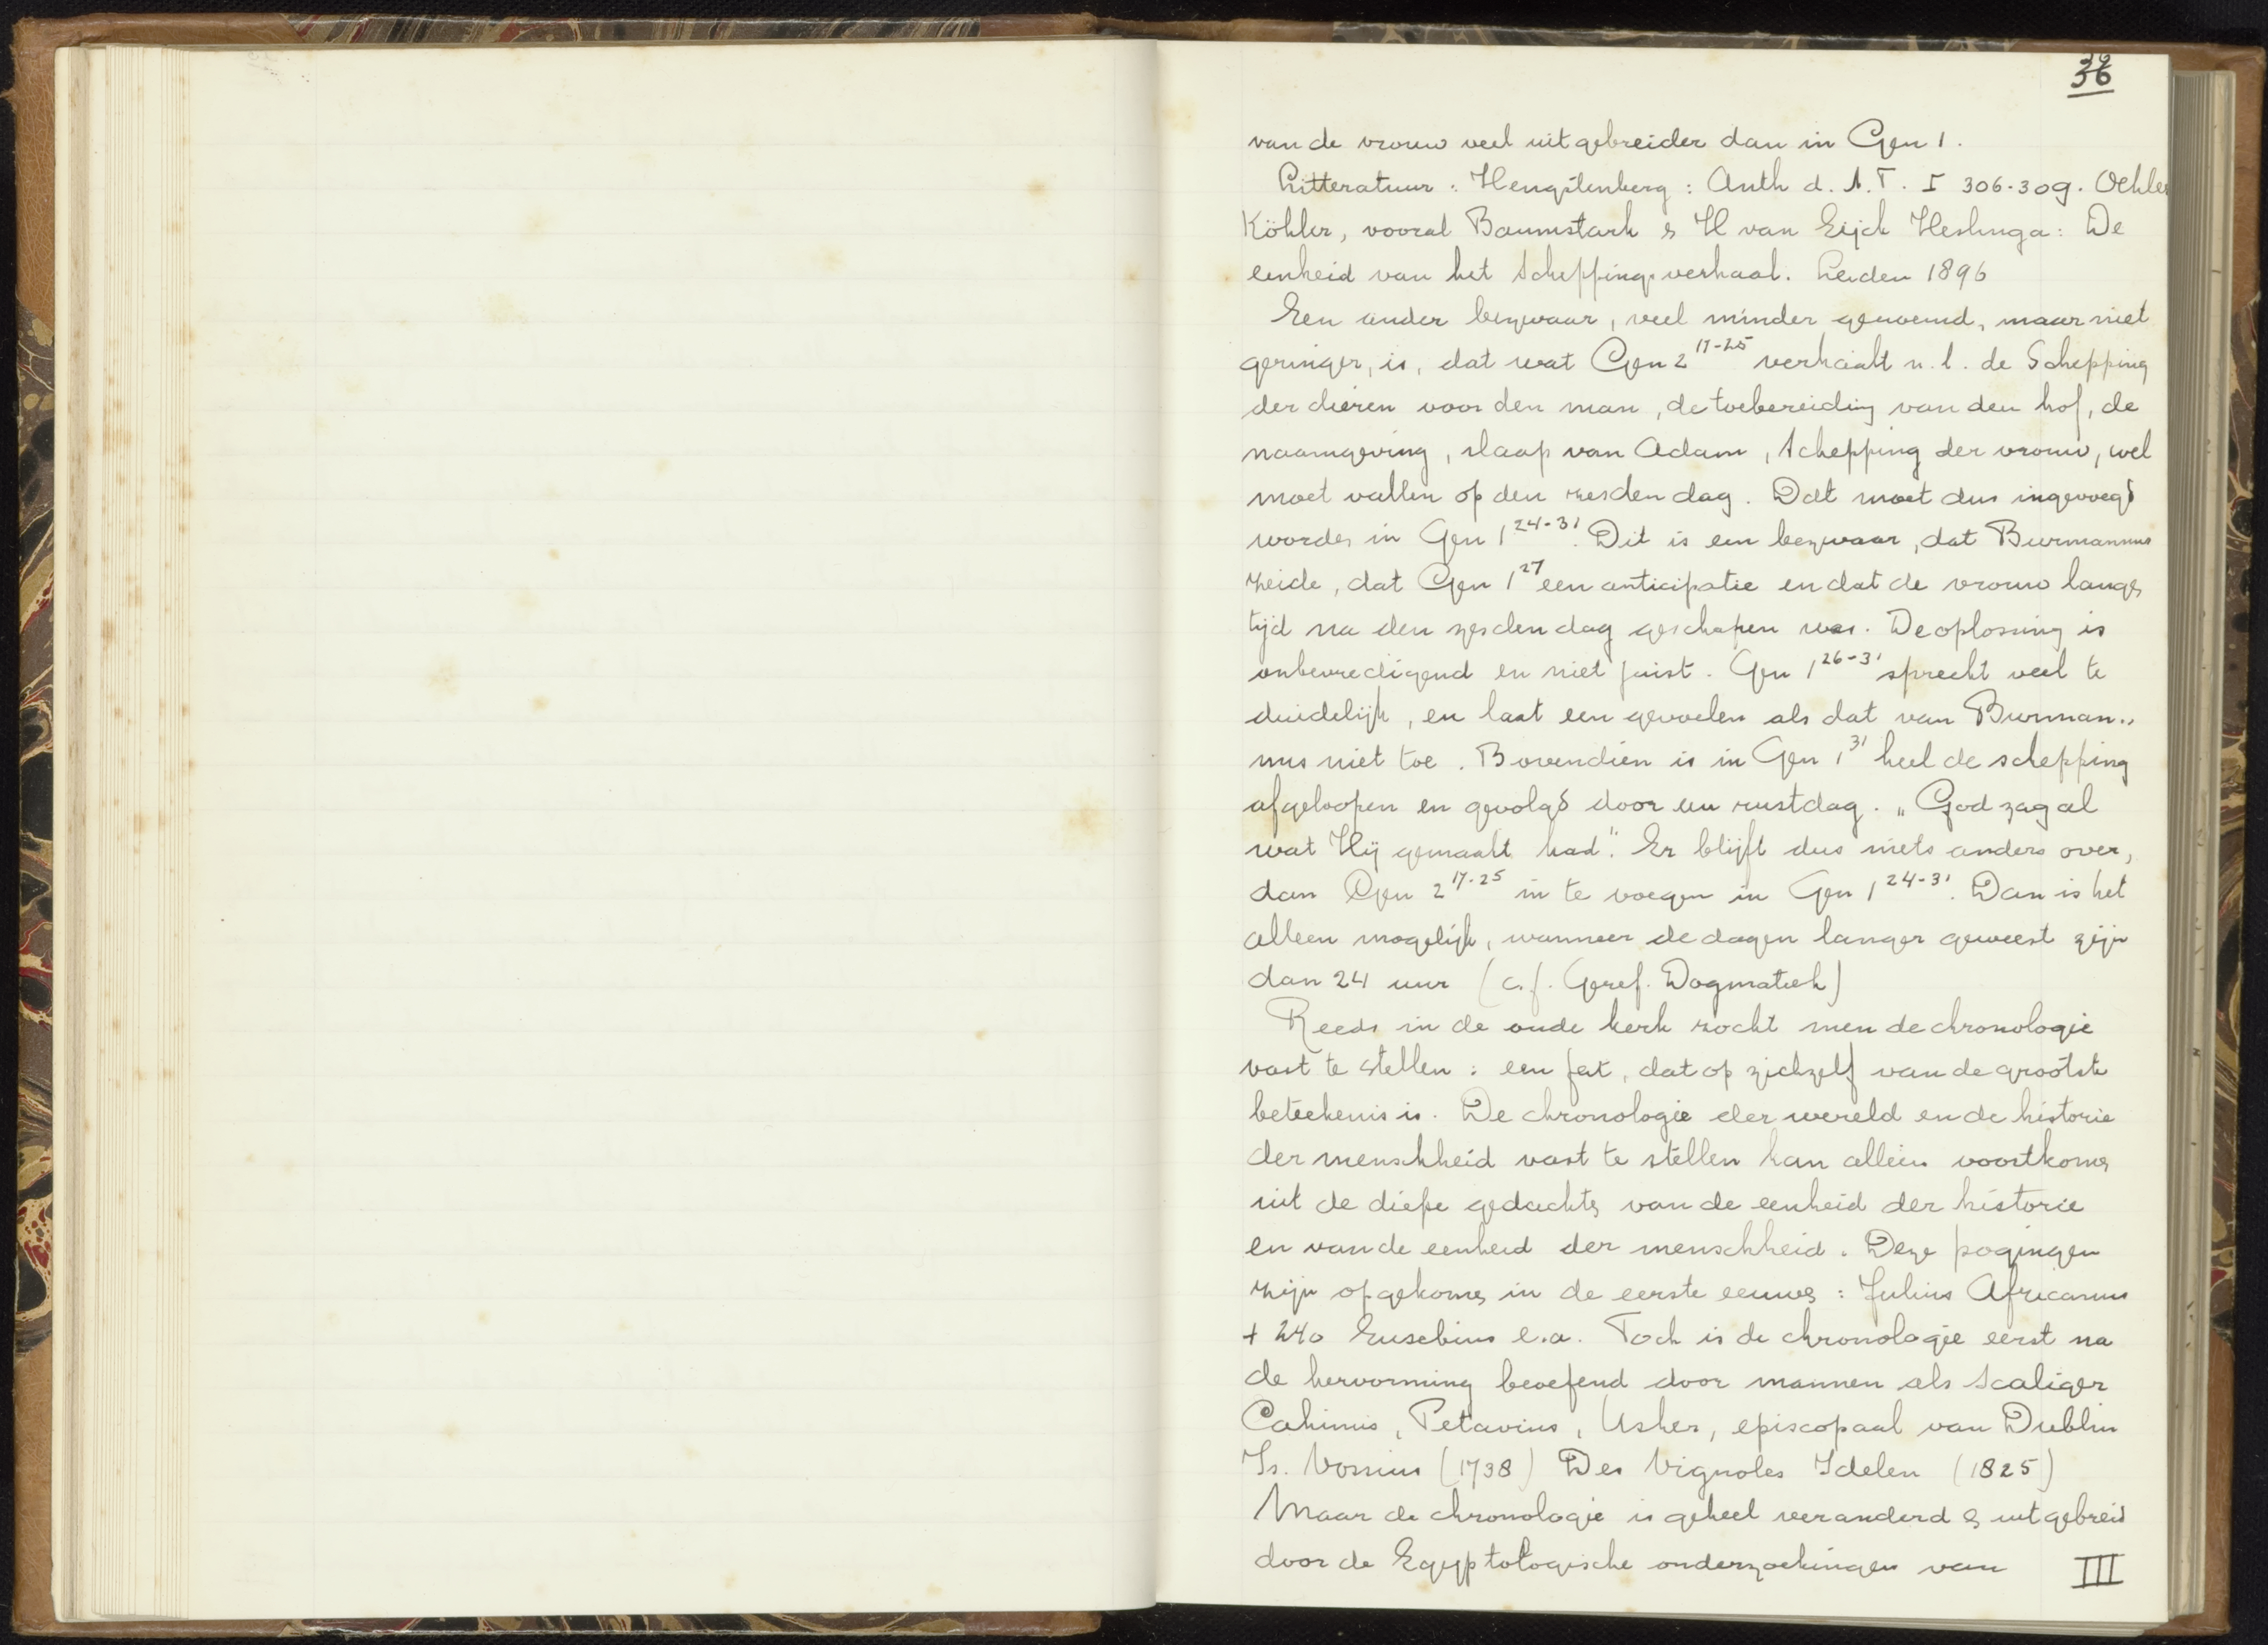 36
van de vrouw veel uitgebreider dan in Gen 1.
Litteratuur: Hengstenberg: Auth d. A.T. I 306-309. Oehler
Köhler, vooral Baumstark & H van Eijck Heslinga: De
eenheid van het Scheppingsverhaal. Leiden 1896
Een ander bezwaar, veel minder genoemd, maar niet
geringer, is, dat wat Gen 2 17-25 verhaalt n.l. de Schepping
der dieren voor den man, de toebereiding van den hof, de
naamgeving, slaap van Adam, Schepping der vrouw, wel
moet vallen op den zesden dag. Dat moet dus ingevoegd
worden in Gen 1 24-31. Dit is een bezwaar, dat Burmannus
zeide, dat Gen 1 27 een anticipatie en dat de vrouw langen
tijd na den zesden dag geschapen was. De oplossing is
onbevredigend en niet juist. Gen 1 26-31 spreekt veel te
duidelijk, en laat een gevoelen als dat van Burman„
nus niet toe. Bovendien is in Gen 1 31 heel de schepping
afgeloopen en gevolgd door een rustdag. „God zag al
wat Hij gemaakt had". Er blijft dus niets anders over,
dan Gen 2 17-25 in te voegen in Gen 1 24-31. Dan is het
alleen mogelijk, wanneer de dagen langer geweest zijn
dan 24 uur (c.f. Geref. Dogmatiek)
Reeds in de oude kerk zocht men de chronologie
vast te stellen: een feit, dat op zichzelf van de grootste
beteekenis is. De chronologie der wereld en de historie
der menschheid vast te stellen kan alleen voortkomen
uit de diepe gedachten van de eenheid der historie
en van de eenheid der menschheid. Deze pogingen
zijn opgekomen in de eerste eeuwen: Julius Africanus
+ 240 Eusebius e.a. Toch is de chronologie eerst na
de hervorming beoefend door mannen als Scaliger
Petavius, Usher, episcopaal van Dublin
Is. Vossius (1738) Des Vignoles Idelen (1825)
Maar de chronologie is geheel veranderd & uitgebreid
door de Egyptologische onderzoekingen van III